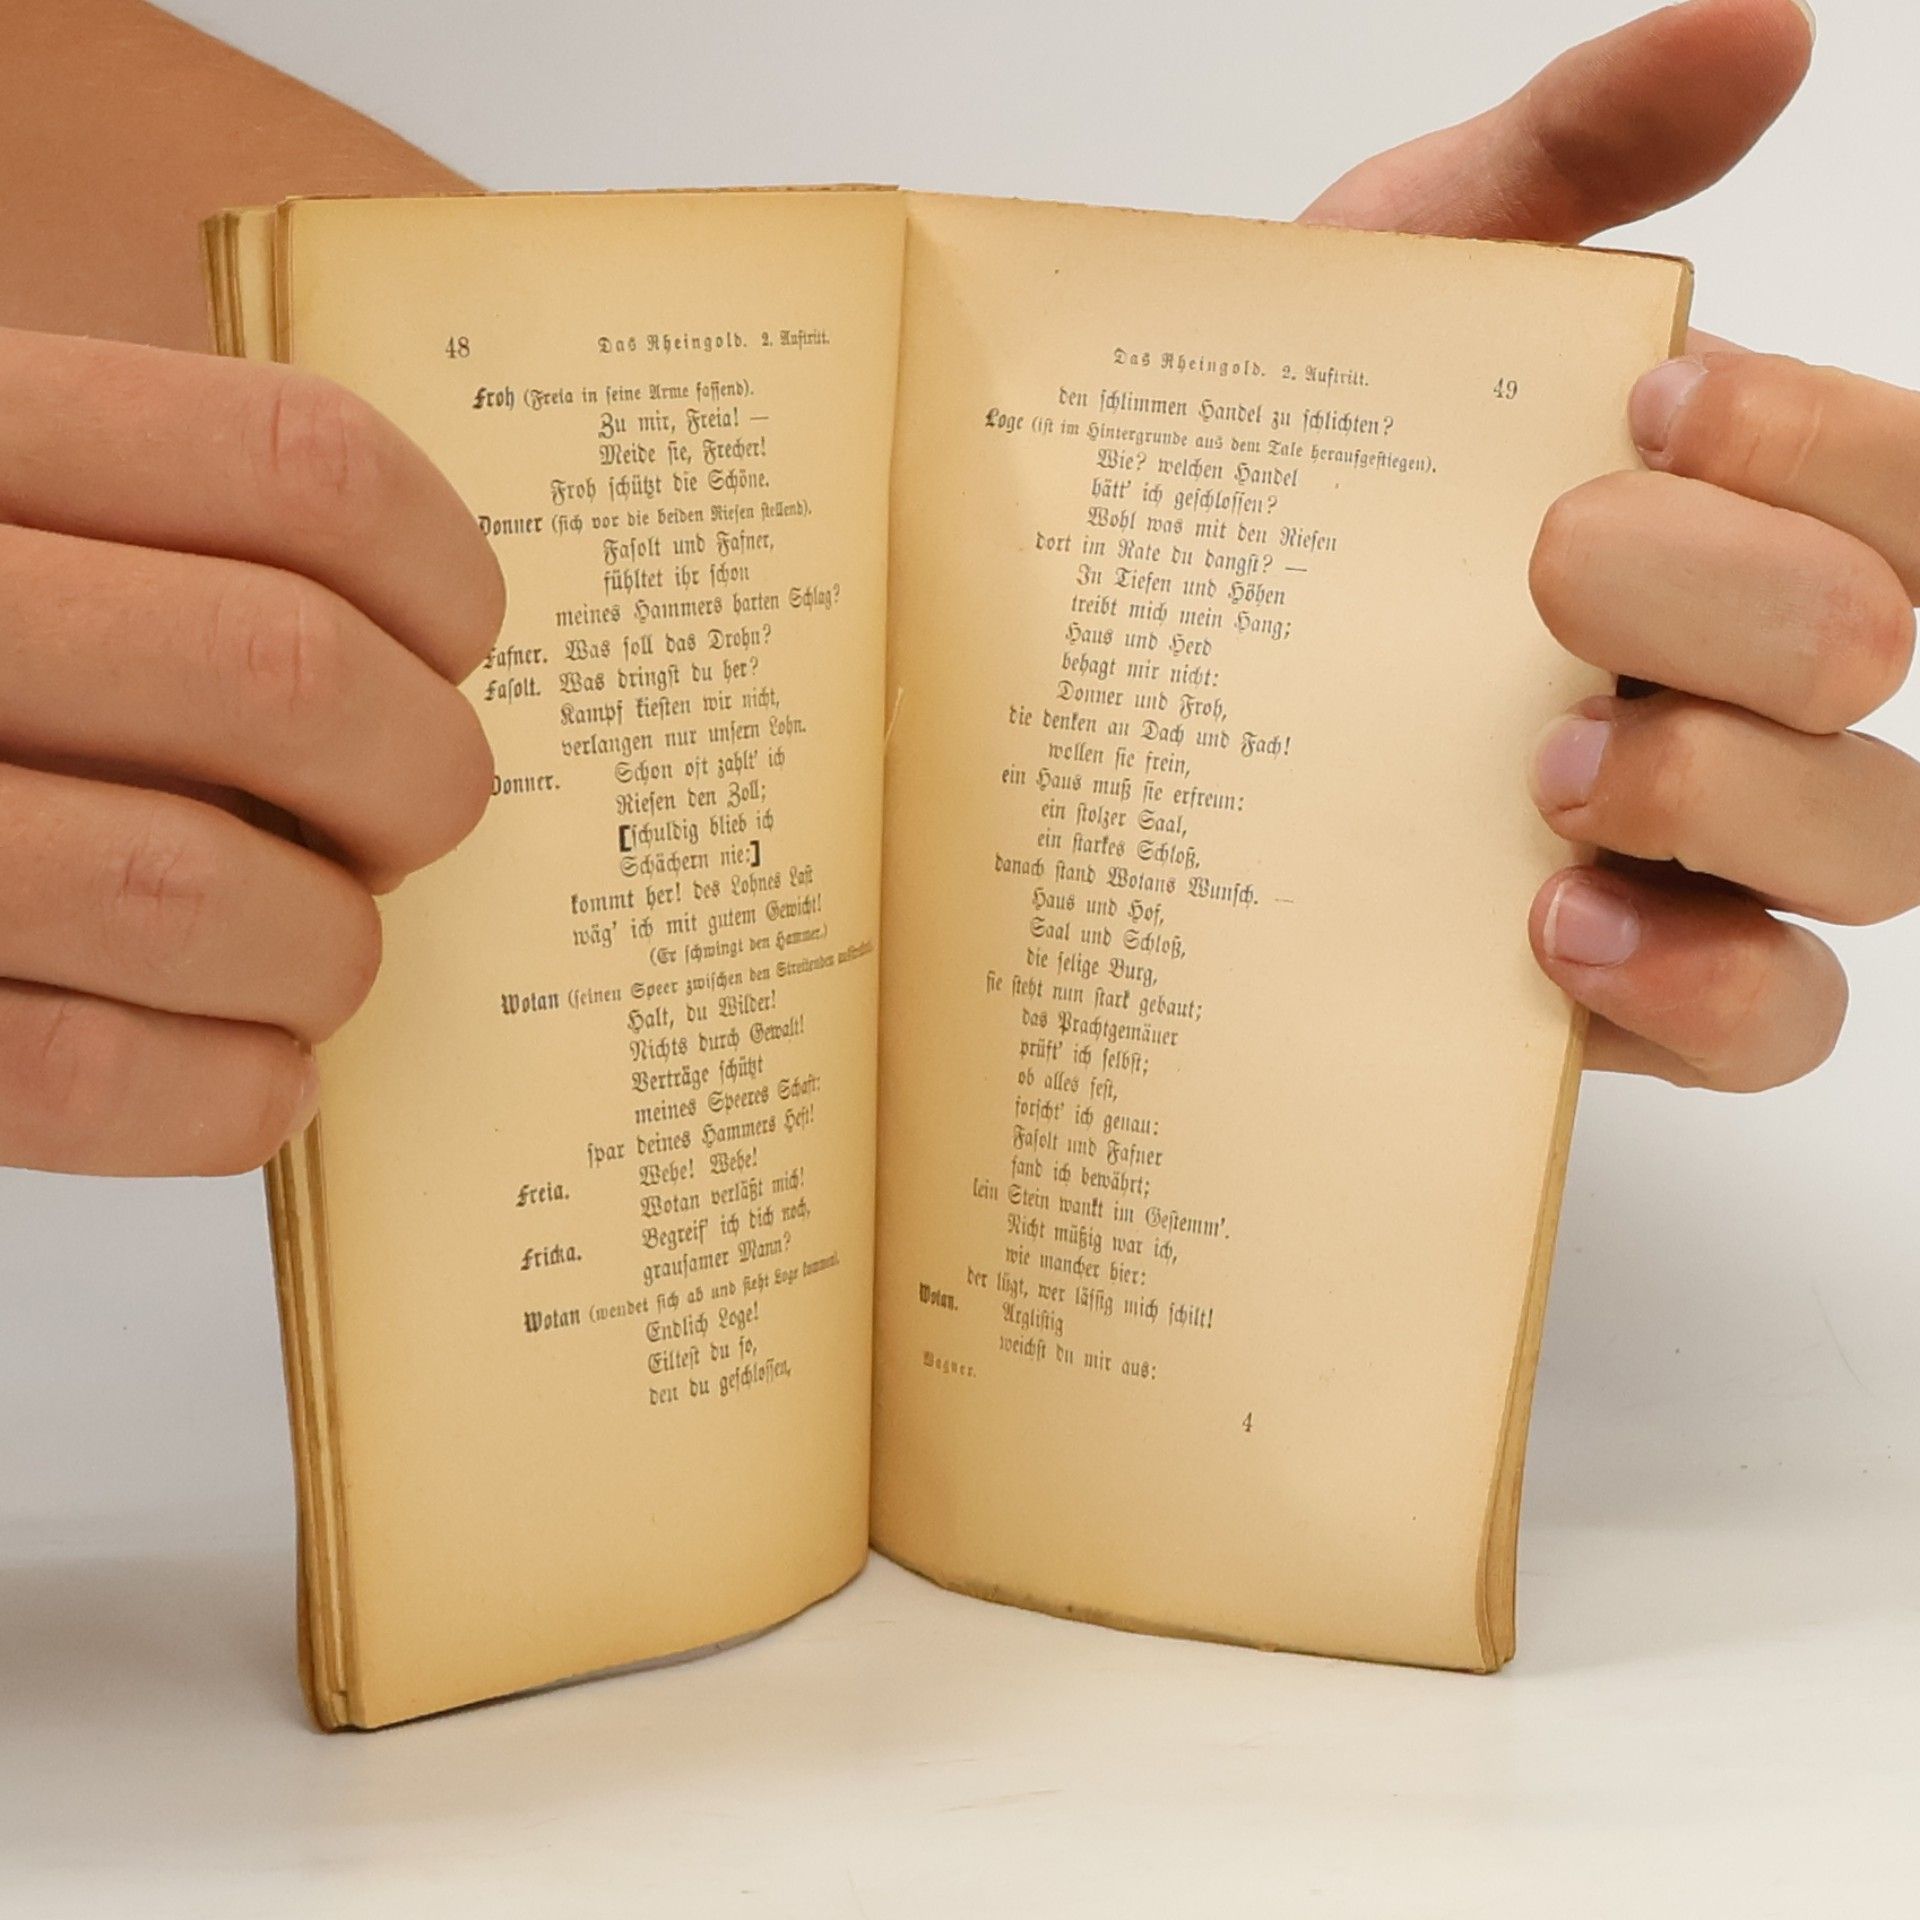 48 Das Rheingold. 2. Auftritt.
Froh (Freia in seine Arme fassend).
Zu mir, Freia! —
Meide sie, Frecher!
Froh schützt die Schöne.
Donner (sich vor die beiden Riesen stellend).
Fasolt und Fafner,
fühltet ihr schon
meines Hammers harten Schlag?
Fafner. Was soll das Drohn?
Fasolt. Was dringst du her?
Kampf kiesten wir nicht,
verlangen nur unsern Lohn.
Donner. Schon oft zahlt' ich
Riesen den Zoll;
[schuldig blieb ich
Schächern nie:]
kommt her! des Lohnes Last
wäg' ich mit gutem Gewicht!
(Er schwingt den Hammer.)
Wotan (seinen Speer zwischen den Streitenden ausstreckend).
Halt, du Wilder!
Nichts durch Gewalt!
Verträge schützt
meines Speeres Schaft:
spar deines Hammers Heft!
Freia. Wehe! Wehe!
Wotan verläßt mich!
Fricka. Begreif' ich dich noch,
grausamer Mann?
Wotan (wendet sich ab und sieht Loge kommen).
Endlich Loge!
Eiltest du so,
den du geschlossen,
Das Rheingold. 2. Auftritt. 49
den schlimmen Handel zu schlichten?
Loge (ist im Hintergrunde aus dem Tale heraufgestiegen).
Wie? welchen Handel
hätt' ich geschlossen?
Wohl was mit den Riesen
dort im Rate du dangst? —
In Tiefen und Höhen
treibt mich mein Hang;
Haus und Herd
behagt mir nicht:
Donner und Froh,
die denken an Dach und Fach!
wollen sie frein,
ein Haus muß sie erfreun:
ein stolzer Saal,
ein starkes Schloß,
danach stand Wotans Wunsch. —
Haus und Hof,
Saal und Schloß,
die selige Burg,
sie steht nun stark gebaut;
das Prachtgemäuer
prüft' ich selbst;
ob alles fest,
forscht' ich genau:
Fasolt und Fafner
fand ich bewährt;
kein Stein wankt im Gestemm'.
Nicht müßig war ich,
wie mancher hier:
der lügt, wer lässig mich schilt!
Wotan. Arglistig
weichst du mir aus:
Wagner. 4